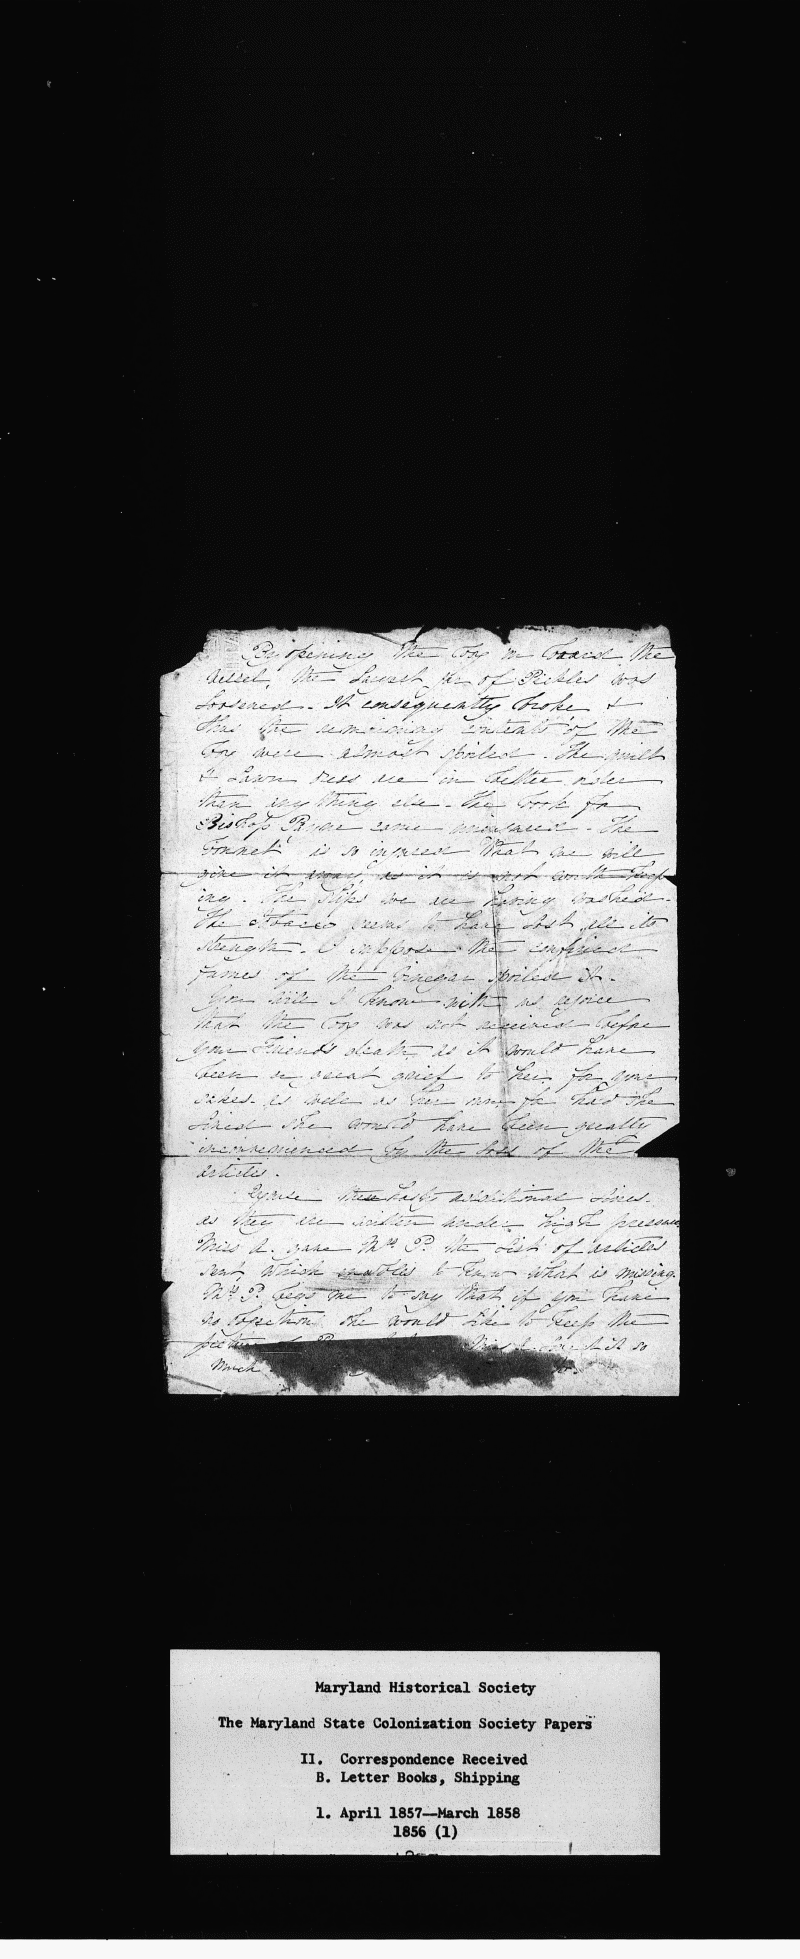 By opening the box on board the
vessel, the Lowest jar of Pickles was
Loosened. It consequently broke &
thus the remaining contents of the
box were almost spoiled. The quilt
& Lawn dress are in better order
than any thing else. The book for
Bishop Payne came uninjured. The
Bonnet is so injured that we will
give it away, as it is not worth keep
ing. The slips we are having washed.
The Tobacco seems to have lost all its
strength. I suppose the confined
fumes of the Vinegar spoiled it.
You will I know with us rejoice
that the box was not received before
your Friend's death, as it would have
been a great grief to her for your
sakes as well as her own for had she
lived she would have been greatly
inconvenienced by the loss of the
articles.
Excuse these hasty additional lines.
as they are written under high pressure.
Miss A. gave Mrs. P. the List of articles
sent which enables to know what is missing.
Mrs. P. begs me to say that if you have
no objection she would like to keep the
Miss loved it so
much
Maryland Historical Society
The Maryland State Colonization Society Papers
II. Correspondence Received
B. Letter Books, Shipping
1. April 1857--March 1858
1856 (1)